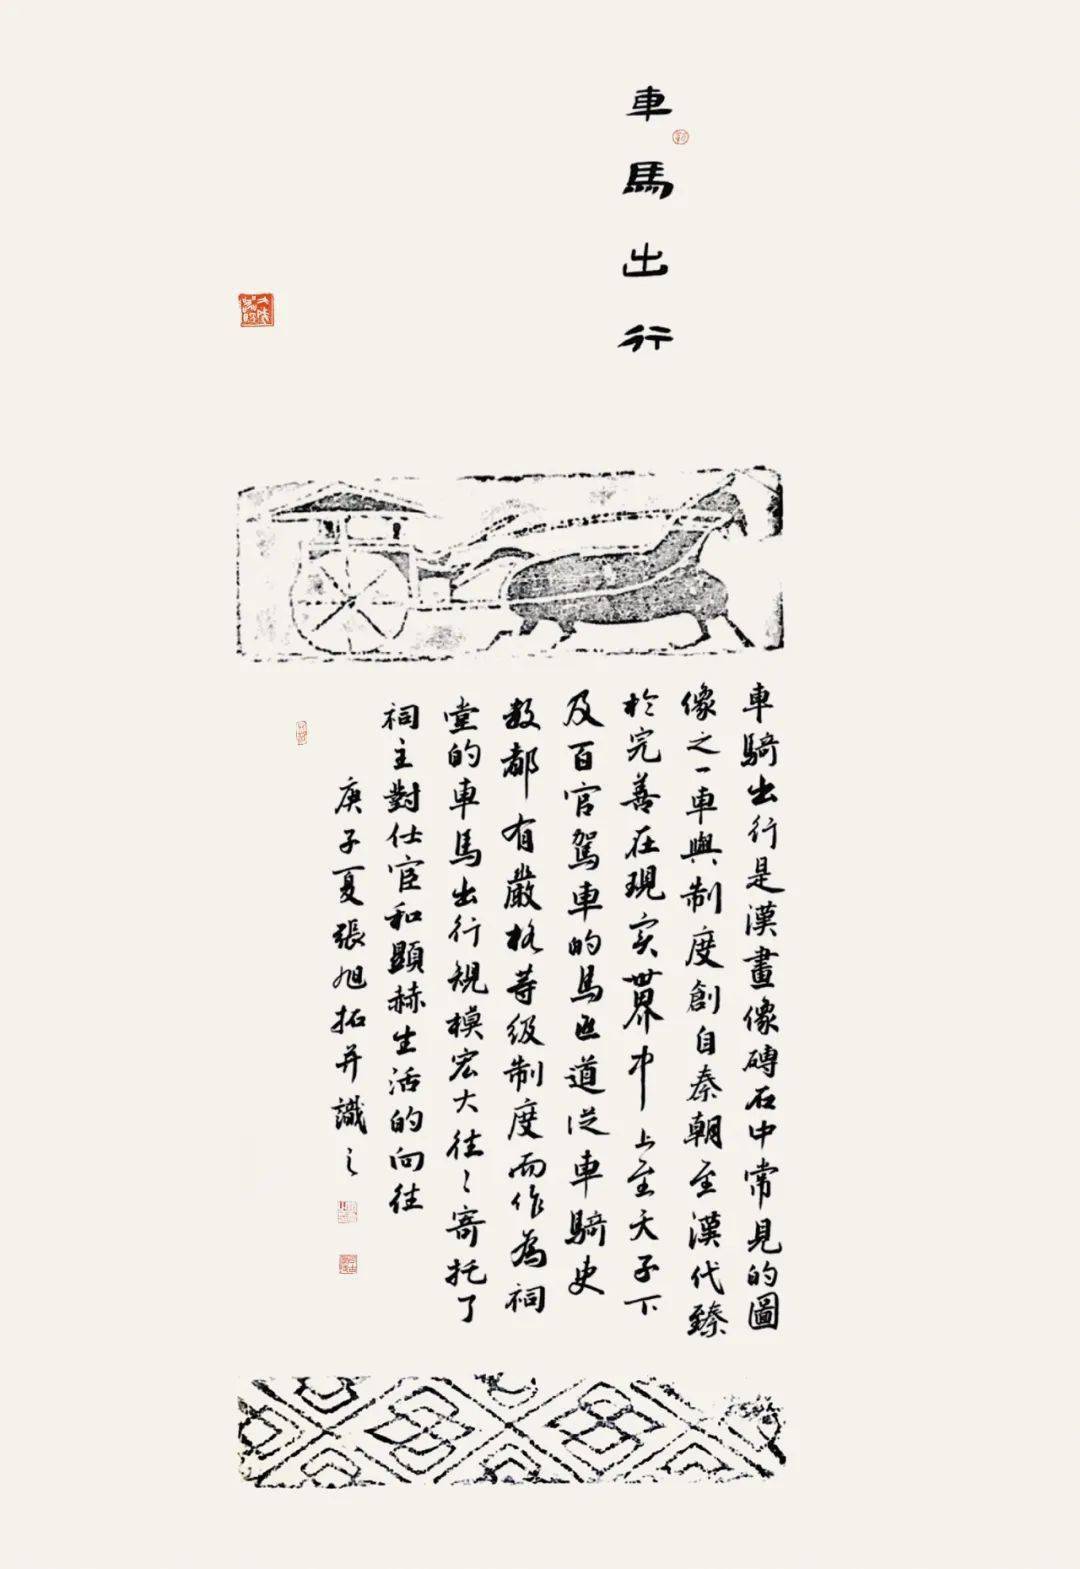 車馬出行
車騎出行是漢畫像磚石中常見的圖
像之一車輿制度創自秦朝至漢代臻
於完善在現实世界中上至天子下
及百官駕車的馬匹導從車騎吏
数都有嚴格等级制度而作為祠
堂的車馬出行規模宏大往〻寄托了
祠主對仕宦和顯赫生活的向往
庚子夏張旭拓并識之